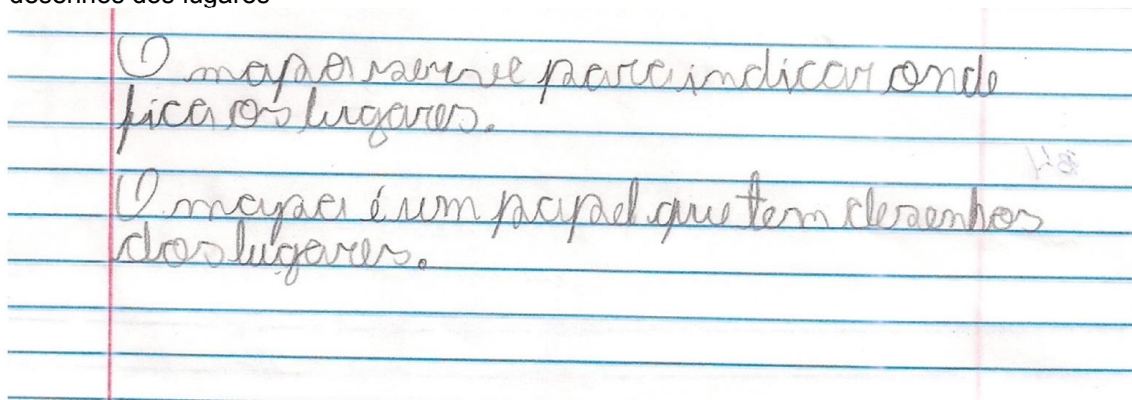 desenhos dos lugares
O mapa serve para indicar onde
fica os lugares.
O mapa é um papel que tem desenhos
dos lugares.